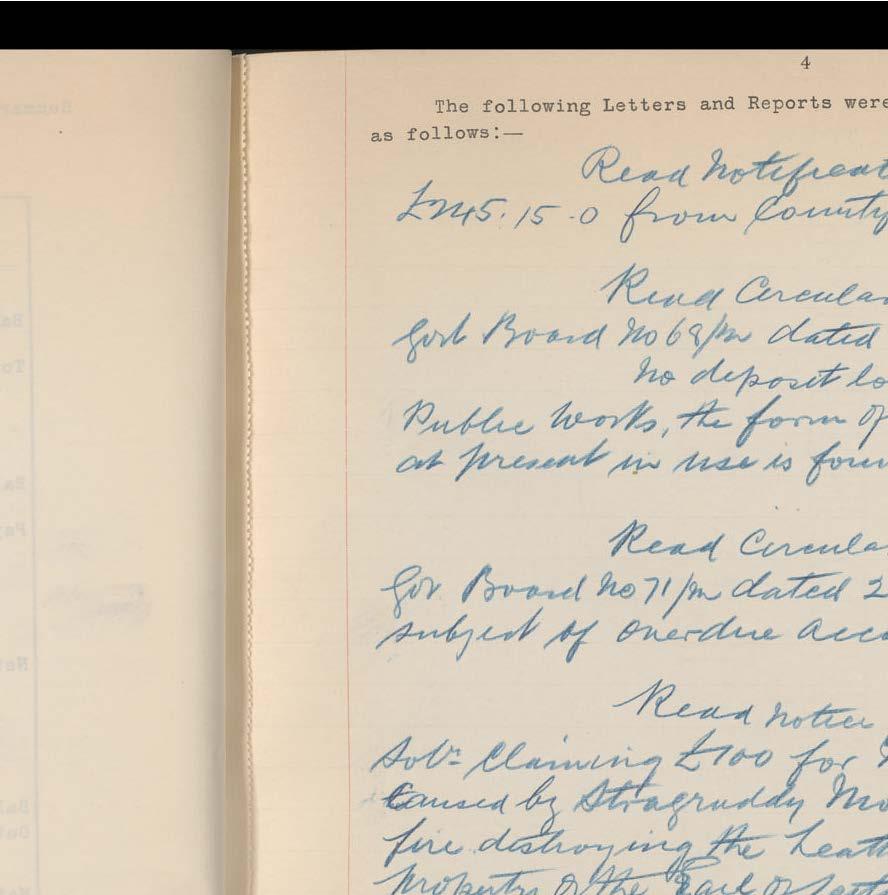 4
The following Letters and Reports were
as follows:—
Read Notificat
£245.15.0 from County
Read Circular
Govt Board No 68/m dated
No deposit lo
Public Works, the form of
at present in use is foun
Read Circula
Gov. Board No 71/m dated 2
subject of overdue acco
Read notice
Solr claiming £700 for
Caused by Stragruddy Mo
fire destroying the heath
Property of the Earl of